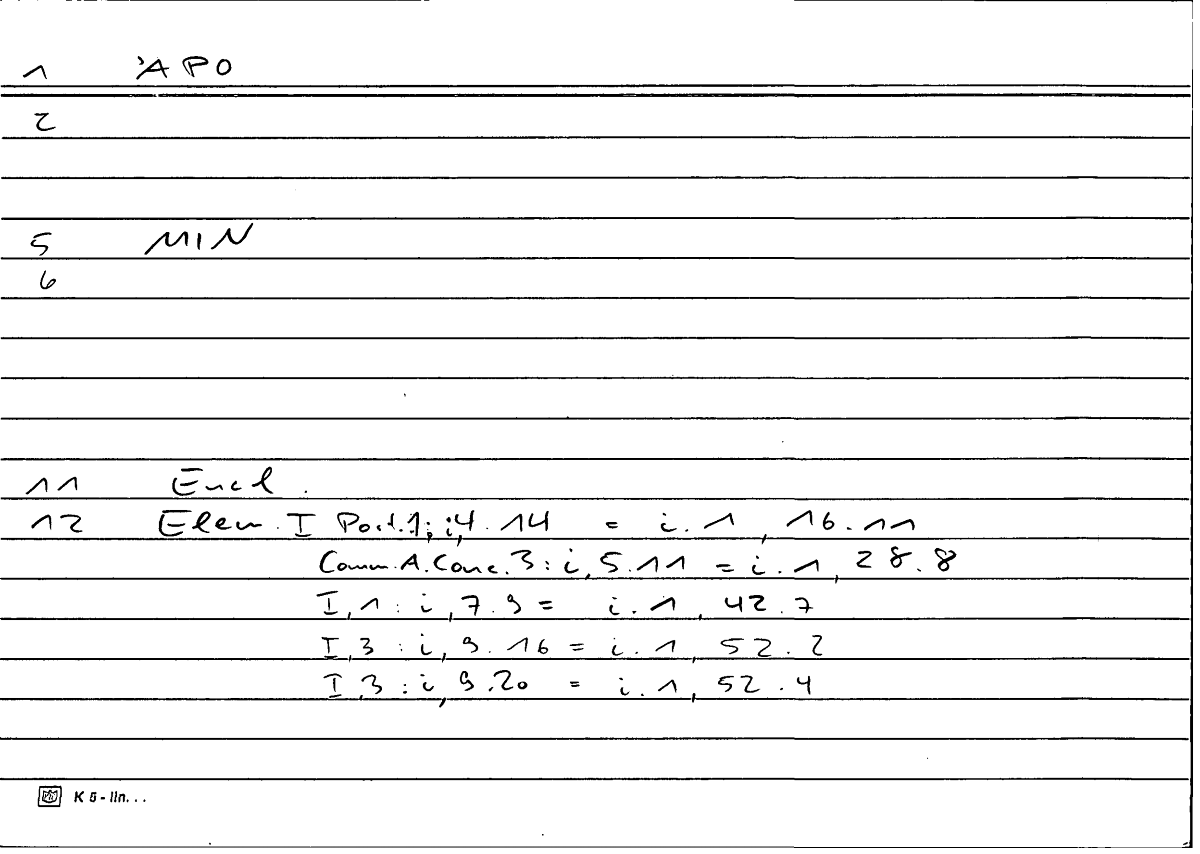 1 'APO
2
5 MIN
6
11 Eucl.
12 Elem. I Post.1: i,4.14 = i.1, 16.11
Comm.A.Conc.3: i,5.11 = i.1, 28.8
I,1: i,7.9 = i.1, 42.7
I,3: i,9.16 = i.1, 52.2
I,3: i,9.20 = i.1, 52.4
K 5 - lin...